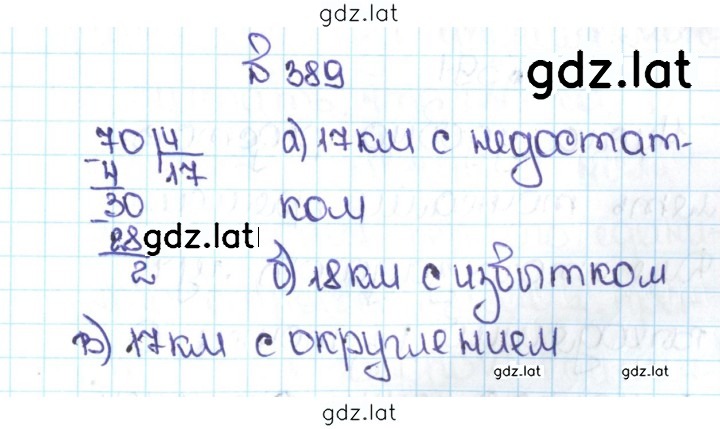 gdz.lat
№ 389
gdz.lat
70 | 4
- 4 17
30
- 28
2
gdz.lat
а) 17 км с недостат-
ком
б) 18 км с извытком
в) 17 км с округлением
gdz.lat
gdz.lat
gdz.lat